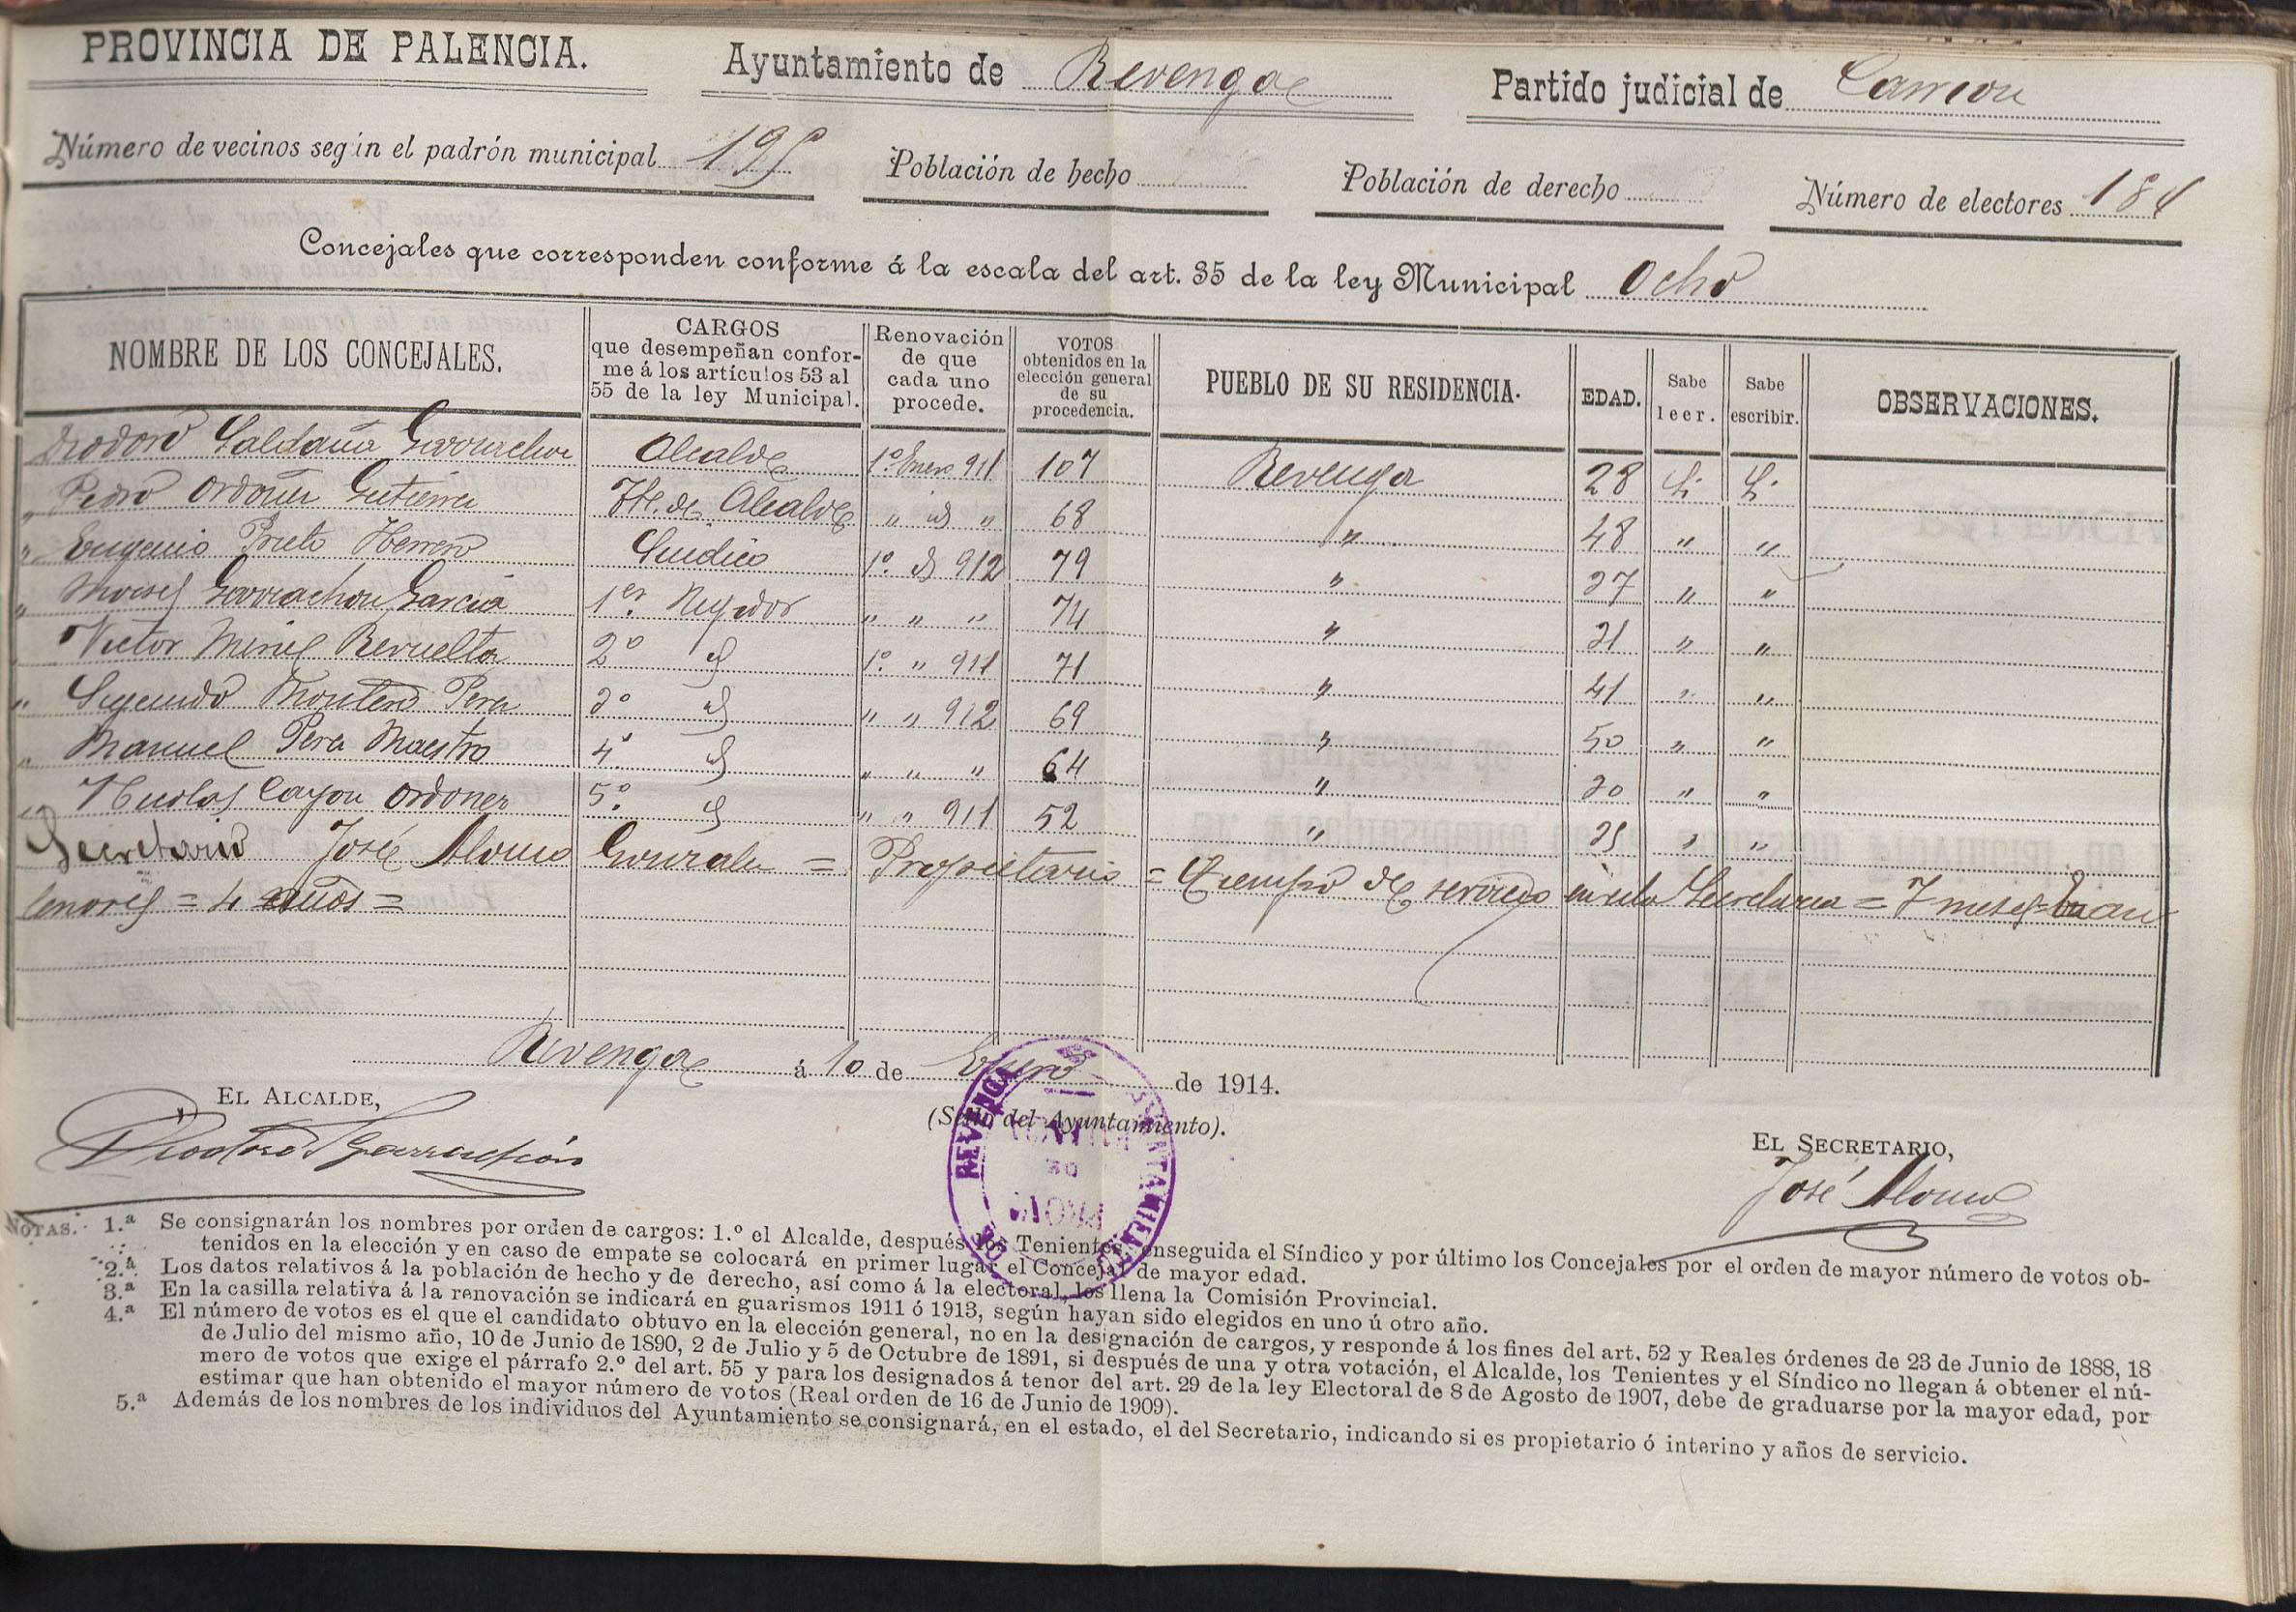 PROVINCIA DE PALENCIA. Ayuntamiento de Revenga Partido judicial de Carrion
Número de vecinos según el padrón municipal 195 Población de hecho Población de derecho Número de electores 184
Concejales que corresponden conforme á la escala del art. 35 de la ley Municipal Ocho
NOMBRE DE LOS CONCEJALES. CARGOS que desempeñan conforme á los artículos 53 al 55 de la ley Municipal. Renovación de que cada uno procede. VOTOS obtenidos en la elección general de su procedencia. PUEBLO DE SU RESIDENCIA. EDAD. Sabe leer. Sabe escribir. OBSERVACIONES.
Diodoro Saldaña Garrachon Alcalde 1º Enero 911 107 Revenga 28 Si Si
" Pedro Ordoñez Gutierrez Tte. de Alcalde " id " 68 " 48 " "
" Eugenio Prieto Herrero Sindico 1º id 912 79 " 37 " "
" Moises Garrachon Garcia 1er Regidor " " " 74 " 31 " "
" Victor Miriel Revuelta 2º id 1º " 911 71 " 41 " "
" Segundo Montero Perez 3º id " " 912 69 " 50 " "
" Manuel Perez Maestro 4º id " " " 64 " 30 " "
" Nicolas Cayon Ordoñez 5º id " " 911 52 " 35 " "
Secretario José Alonso Gonzalez = Propietario = Tiempo de servicio en esta Secretaria = 7 meses =
= 4 años =
Revenga á 10 de Enero de 1914.
EL ALCALDE,
(Sello del Ayuntamiento).
AYUNTAMIENTO DE REVENGA
EL SECRETARIO,
Diodoro S Garrachón
José Alonso
NOTAS. 1.ª Se consignarán los nombres por orden de cargos: 1.º el Alcalde, después los Tenientes, enseguida el Síndico y por último los Concejales por el orden de mayor número de votos ob-
tenidos en la elección y en caso de empate se colocará en primer lugar el Concejal de mayor edad.
2.ª Los datos relativos á la población de hecho y de derecho, así como á la electoral, los llena la Comisión Provincial.
3.ª En la casilla relativa á la renovación se indicará en guarismos 1911 ó 1913, según hayan sido elegidos en uno ú otro año.
4.ª El número de votos es el que el candidato obtuvo en la elección general, no en la designación de cargos, y responde á los fines del art. 52 y Reales órdenes de 23 de Junio de 1888, 18
de Julio del mismo año, 10 de Junio de 1890, 2 de Julio y 5 de Octubre de 1891, si después de una y otra votación, el Alcalde, los Tenientes y el Síndico no llegan á obtener el nú-
mero de votos que exige el párrafo 2.º del art. 55 y para los designados á tenor del art. 29 de la ley Electoral de 8 de Agosto de 1907, debe de graduarse por la mayor edad, por
estimar que han obtenido el mayor número de votos (Real orden de 16 de Junio de 1909).
5.ª Además de los nombres de los individuos del Ayuntamiento se consignará, en el estado, el del Secretario, indicando si es propietario ó interino y años de servicio.